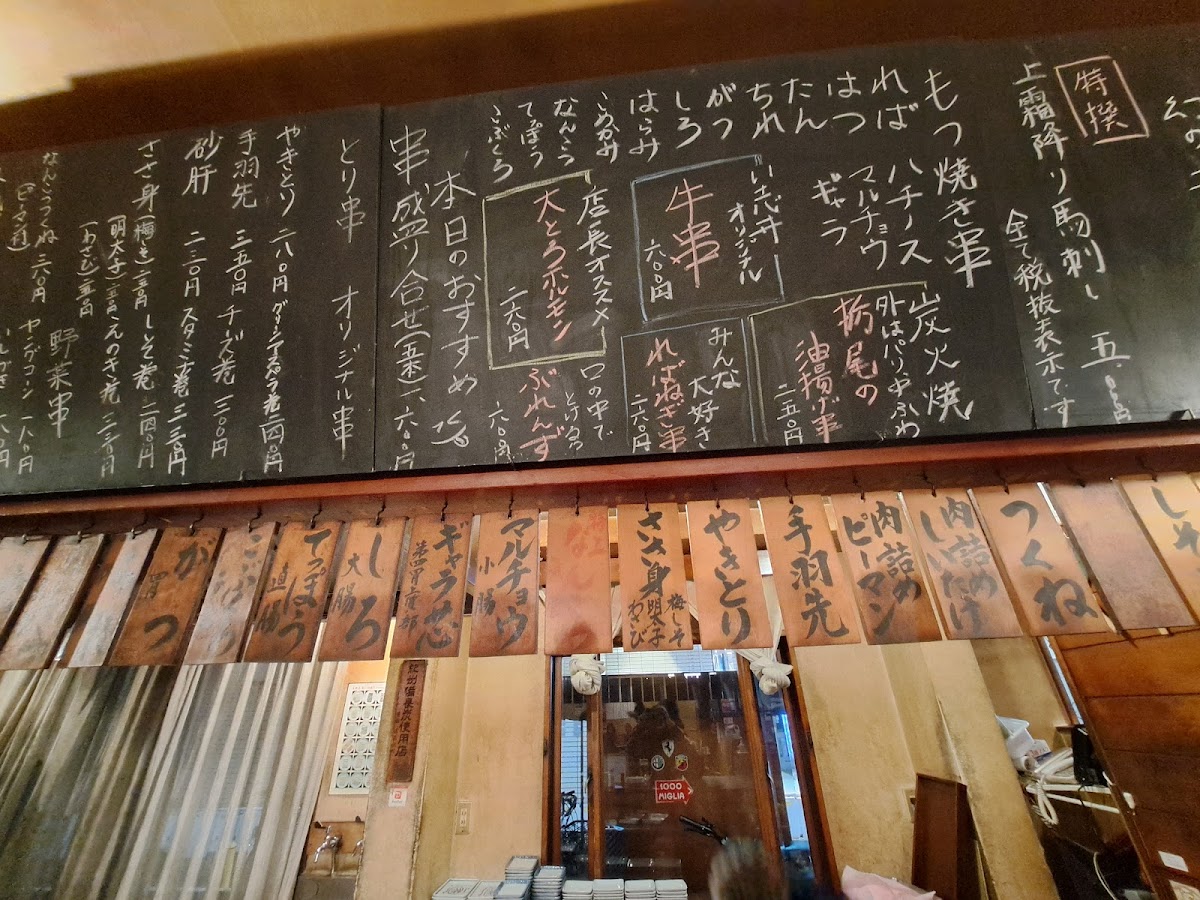 特撰
上霜降り馬刺し
全て税抜表示です
もつ焼き串
れば
はつ
たん
ちれ
がつ
しろ
はらみ
こめかみ
なんこつ
てっぽう
こぶくろ
ハチノス
マルチョウ
ギャラ
炭火焼
外はパリ中ふわ
栃尾の
油揚げ串
二五〇円
オリジナル
牛串
六〇〇円
みんな
大好き
ればねぎ串
二六〇円
店長オススメ
大とろホルモン
二六〇円
口の中で
とけるっ
ぶれんず
本日のおすすめ
串盛り合せ(五本)
とり串
オリジナル串
やきとり 二八〇円
手羽先 三五〇円
チーズ巻 三〇〇円
砂肝 二三〇円
スタミナ巻 三二〇円
ささ身(梅しそ)
(明太子)
(わさび)
しそ巻 二四〇円
えのき巻 二三〇円
なんこつつくね 二六〇円
(ピーマン付)
野菜串
ヤングコーン 一八〇円
しそ
つくね
肉詰めしいたけ
肉詰めピーマン
手羽先
やきとり
ささ身 梅しそ 明太子 わさび
マルチョウ 小腸
ギャラ芯
しろ 大腸
てっぽう 直腸
こぶくろ
がつ 胃
紀州備長炭使用店
1000
MIGLIA